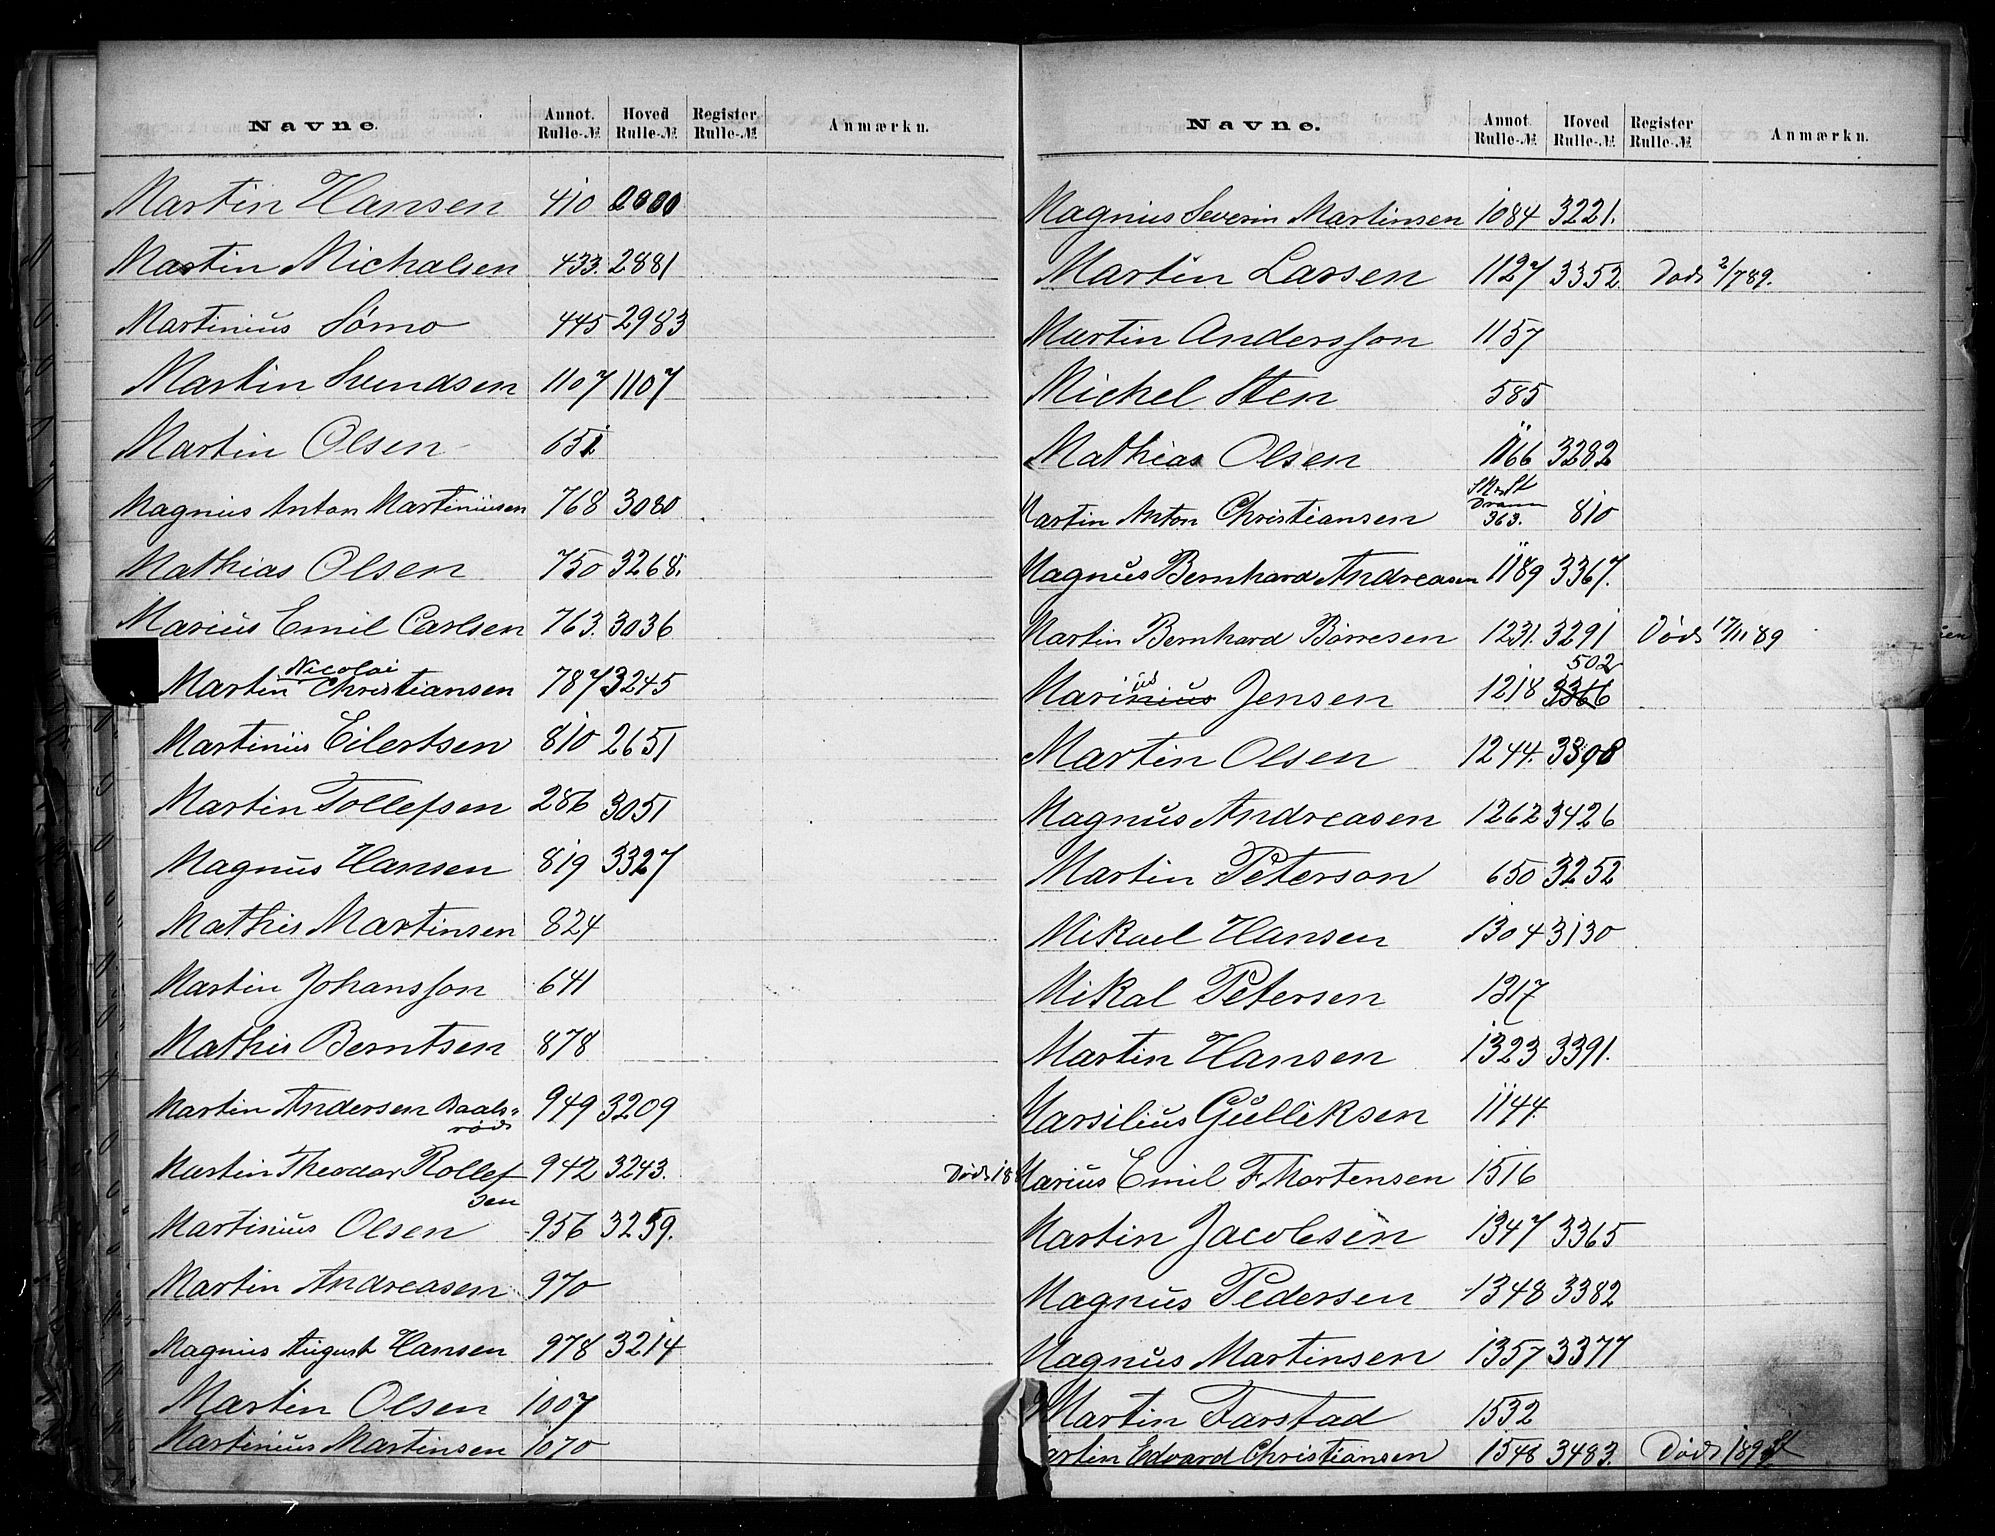 Navne. Annot. Rulle-№ Hoved Rulle-№ Register Rulle-№ Anmærkn.
Martin Hansen 410
Martin Michalsen 433. 2881
Martinius Sømo 445 2983
Martin Svendsen 1107 1107
Martin Olsen 651
Magnus Anton Martiniusen 768 3080
Mathias Olsen 750 3268.
Marius Emil Carlsen 763. 3036
Nicolai
Martin Christiansen 787 3245
Martiniis Eilertsen 810 2651
Martin Tollefsen 286 3051
Magnus Hansen 819 3327
Mathis Martinsen 824
Martin Johansson 641
Mathis Berntsen 878
Martin Andersen Baals-
rød 949 3209
Martin Theodor Rollef
sen 942 3243. Død 18
Martinius Olsen 956 3259.
Martin Andreasen 970
Magnus August Hansen 978 3214
Martin Olsen 1007
Martinius Martinsen 1070
Navne. Annot Rulle-№ Hoved Rulle-№ Register Rulle-№ Anmærkn.
Magnus Severin Martinsen 1084 3221.
Martin Larsen 1127 3352 Død 2/7 89.
Martin Andersson 1157
Michel Sten 585
Mathias Olsen 1166 3282
Martin Anton Christiansen Dram 363. 810
Magnus Bernhard Andreasen 1189 3367.
Martin Bernhard Børresen 1231. 3291 Død 17/11 89
502
Marinius Jensen 1218 3366
Martin Olsen 1244. 3398
Magnus Andreasen 1262 3426
Martin Peterson 650 3252
Mikael Hansen 1304 3130
Mikal Petersen 1317
Martin Hansen 1323 3391.
Marsilius Gulliksen 1144.
Marius Emil F. Mortensen 1516
Martin Jacobsen 1347 3365
Magnus Pedersen 1348 3382
Magnus Martinsen 1357 3377
Martin Farstad 1532
Martin Edvard Christiansen 1548 3483. Død